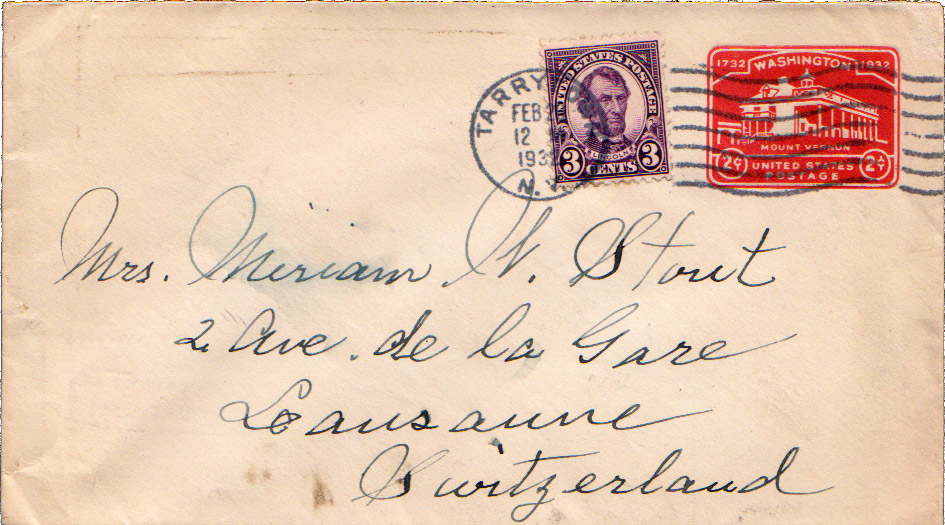 UNITED STATES POSTAGE
LINCOLN
3 CENTS 3
1732 WASHINGTON 1932
MOUNT VERNON
2¢ UNITED STATES 2¢
POSTAGE
TARRY
FEB
12
193
N.Y.
Mrs. Miriam W. Stout
2 Ave. de la Gare
Lausanne
Switzerland